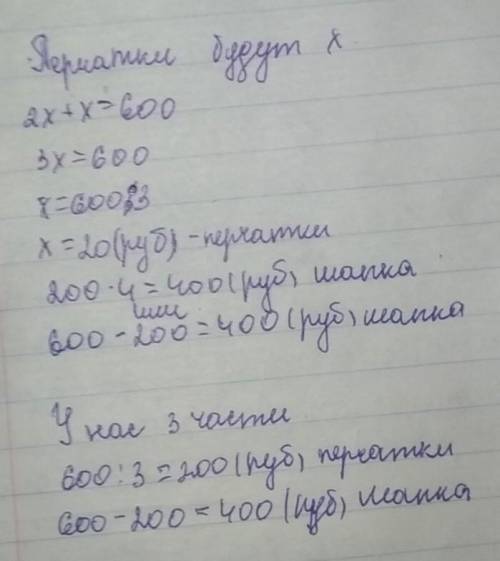 Перчатки будут x
2x+x=600
3x=600
x=600:3
x=20(руб)-перчатки
200·4=400(руб) шапка
или
600-200=400(руб) шапка
У нас 3 части
600:3=200(руб) перчатки
600-200=400(руб) шапка